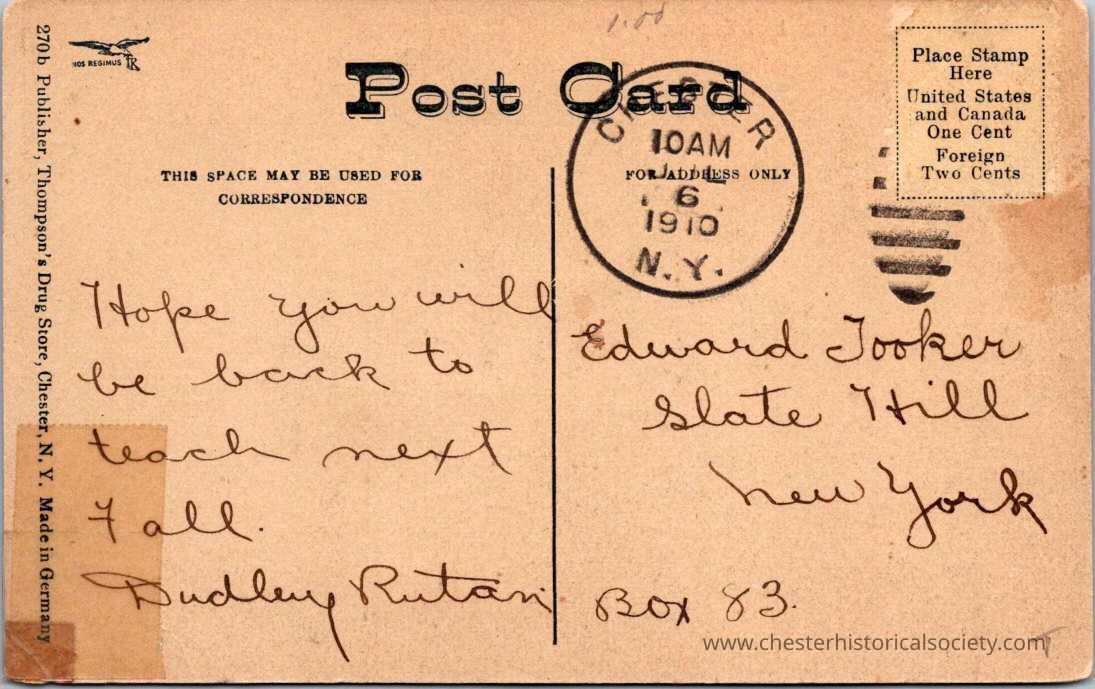 1.00
270b Publisher, Thompson's Drug Store, Chester, N. Y. Made in Germany
NOS REGIMUS
Post Card
THIS SPACE MAY BE USED FOR
CORRESPONDENCE
FOR ADDRESS ONLY
CHESTER
10AM
JUL
6
1910
N.Y.
Place Stamp
Here
United States
and Canada
One Cent
Foreign
Two Cents
Hope you will
be back to
teach next
Fall.
Dudley Rutan
Edward Tooker
Slate Hill
New York
Box 83.
www.chesterhistoricalsociety.com